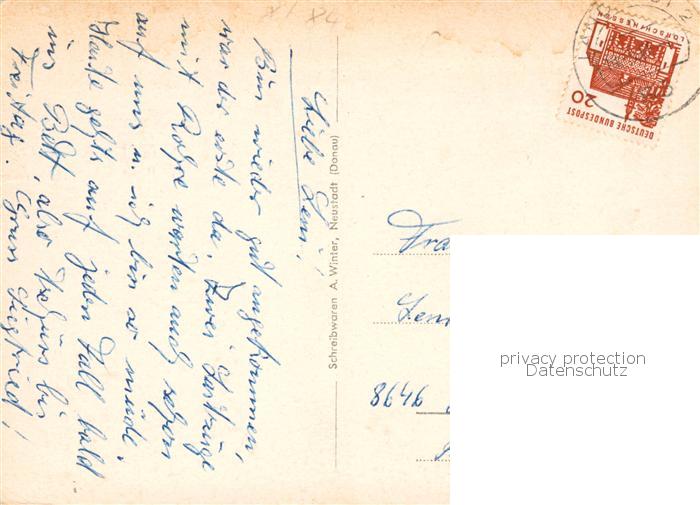 Liebe Leni!
Bin wieder gut angekommen,
war der erste da. Zwei Lastzüge
mit Rohre warten auch schon
auf uns u. ich bin so müde.
Heute gehts auf jeden Fall bald
ins Bett, also tschüss bis
Freitag. Gruss Siegfried!
Schreibwaren A. Winter, Neustadt (Donau)
DEUTSCHE BUNDESPOST
20
LORSCH/HESSEN
Fra
Leni
8646
privacy protection
Datenschutz